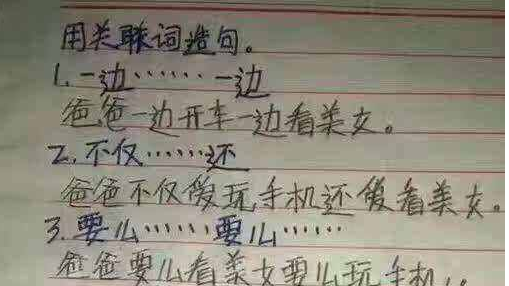 用关联词造句。
1.一边······一边
爸爸一边开车一边看美女。
2.不仅······还
爸爸不仅爱玩手机还爱看美女。
3.要么······要么······
爸爸要么看美女要么玩手机。